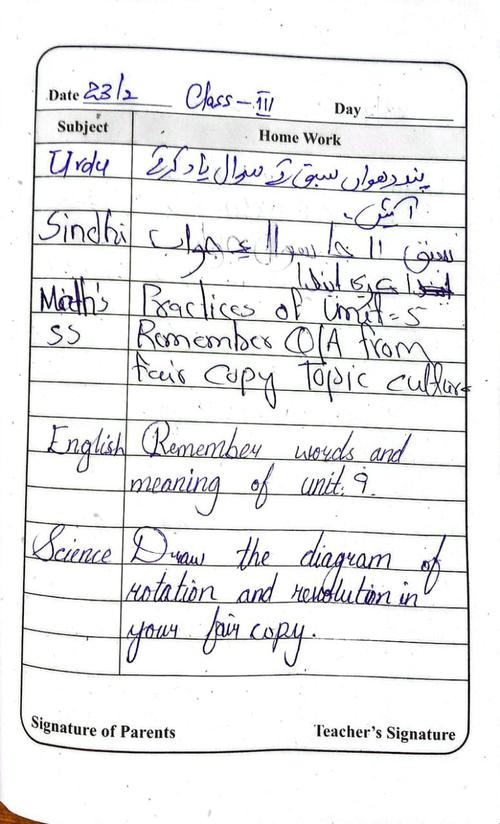 Date 23/2 Class - III Day
Subject Home Work
Urdu پندرھواں سبق کے سوال یاد کرکے
آئیں۔
Sindhi سبق 11 جا سوال ۽ جواب
ياد ڪري ايندا
Math's Practices of Unit = 5
SS Remember Q/A from
fair copy Topic culture
English Remember words and
meaning of unit. 9.
Science Draw the diagram of
rotation and revolution in
your fair copy.
Signature of Parents Teacher's Signature